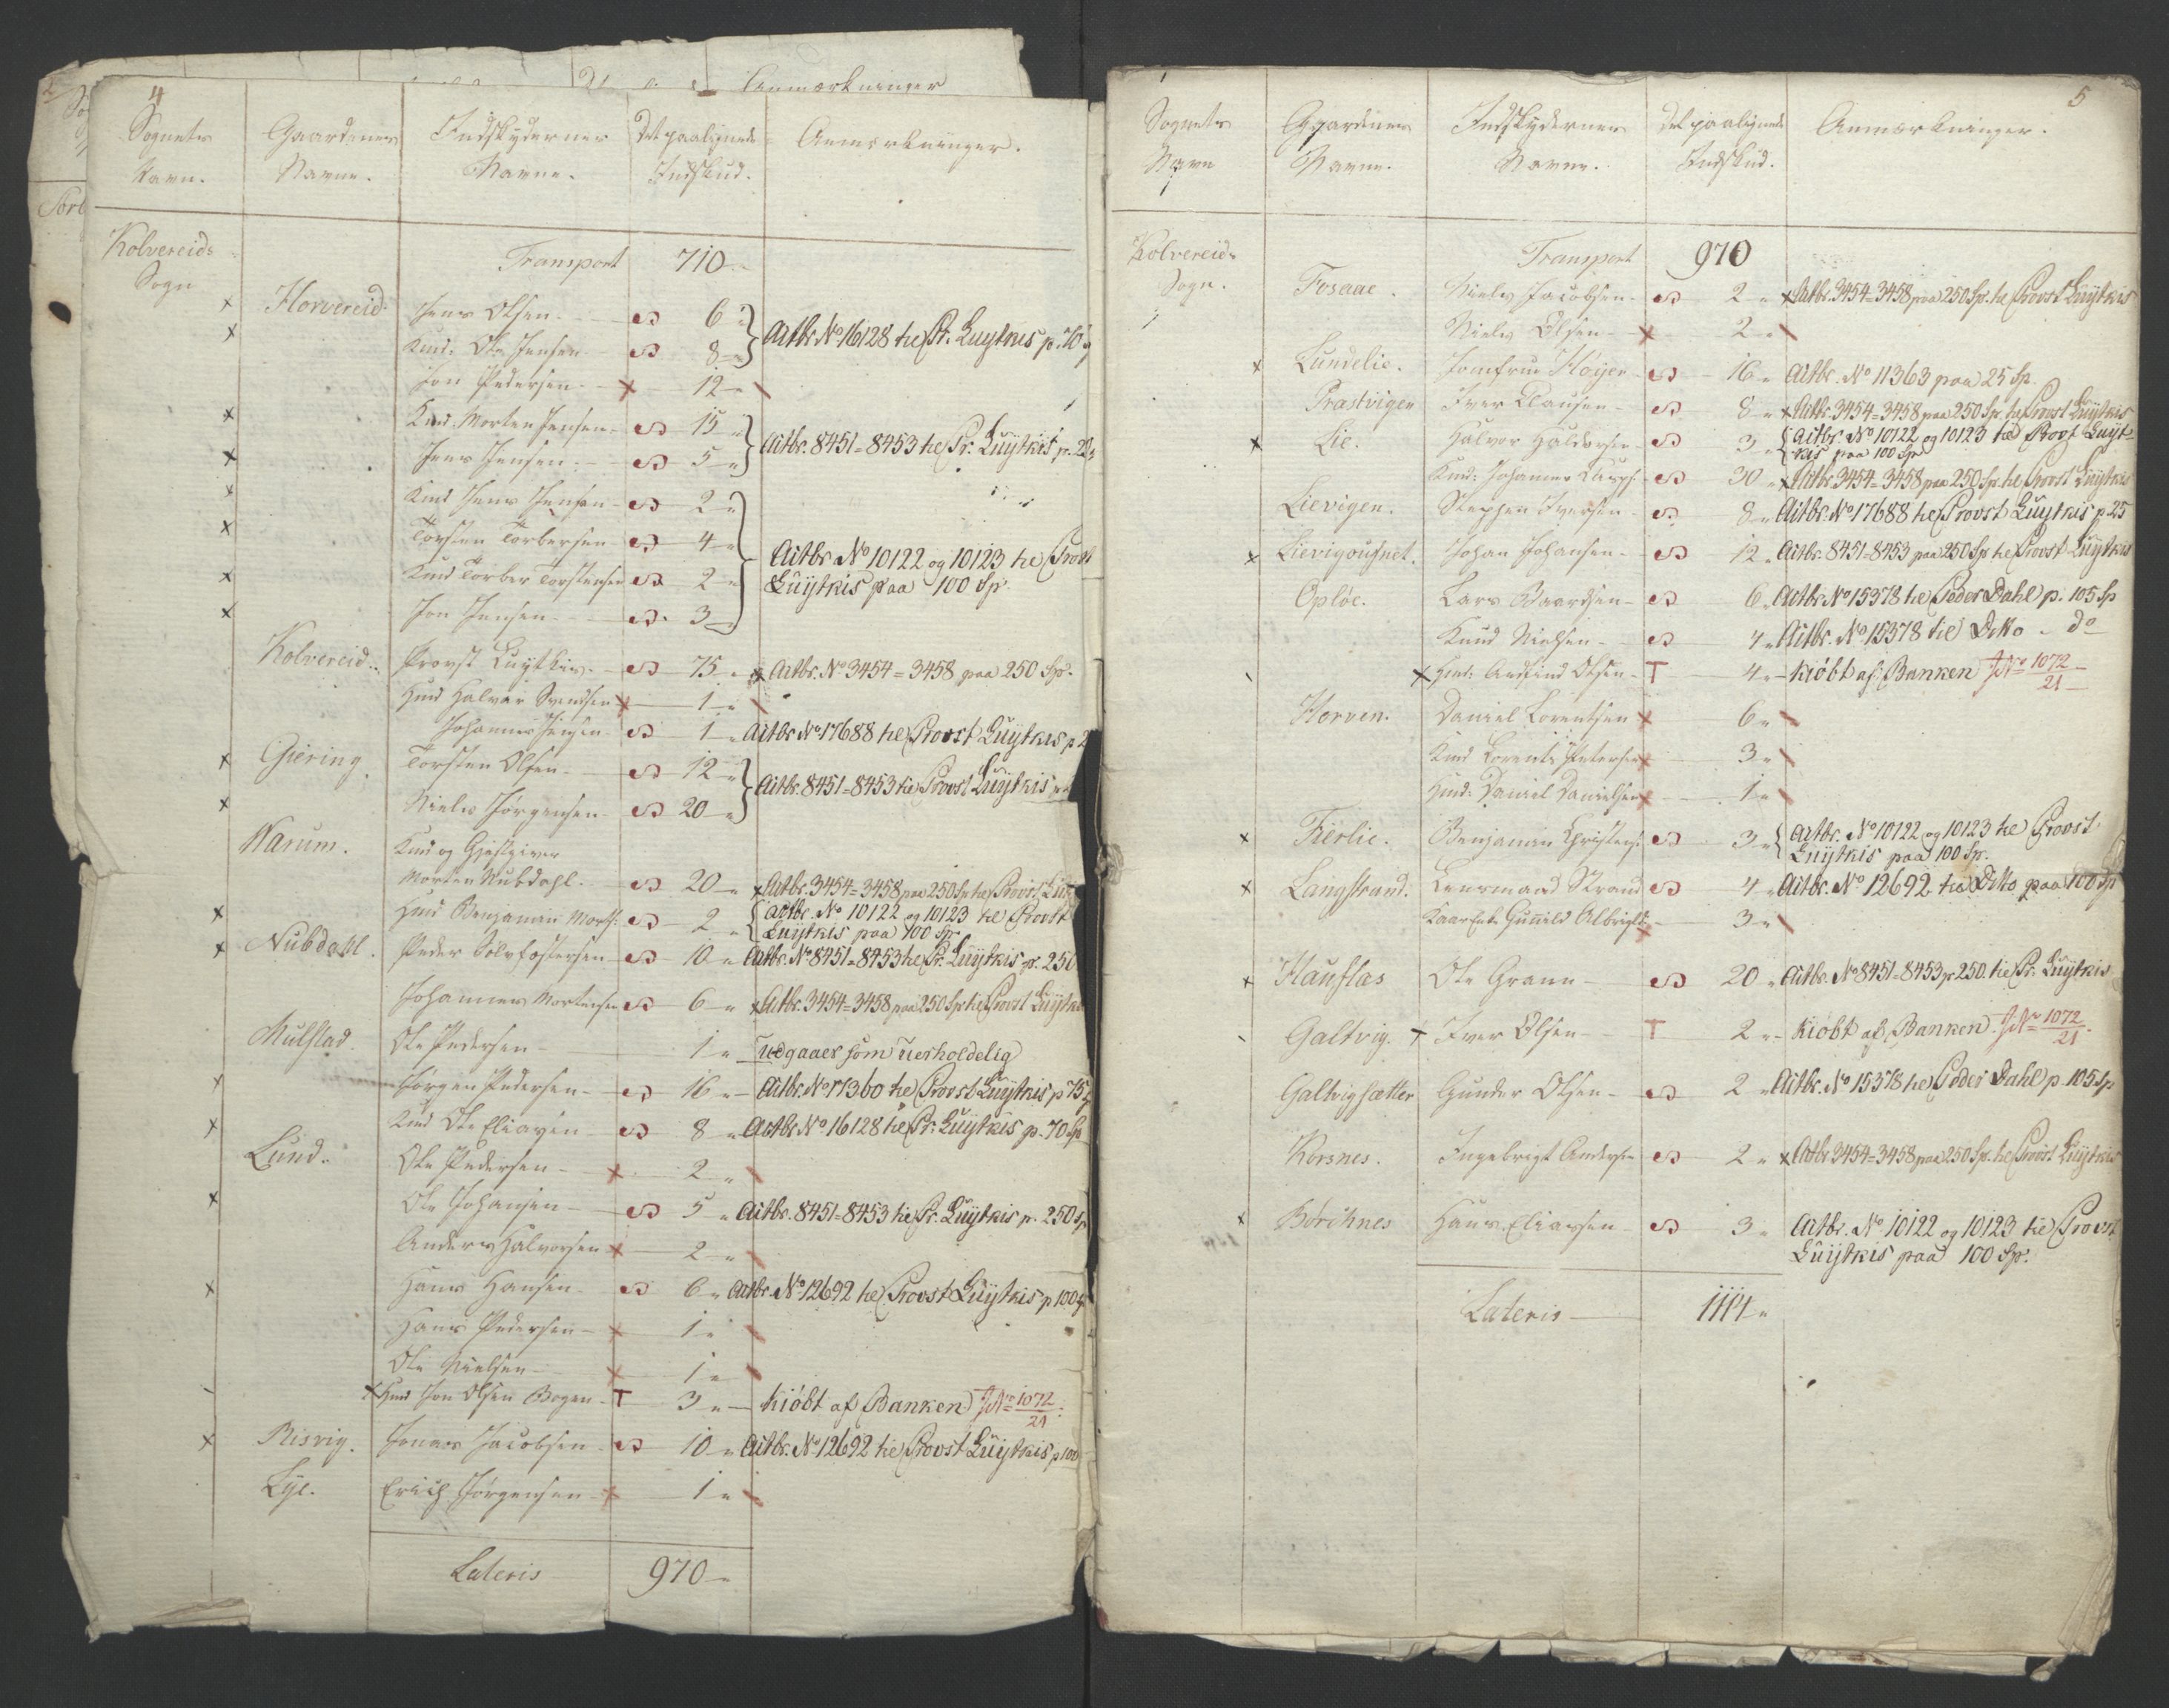 4
Sognets Gaardenes Indskydernes Det paalignede Anmærkninger.
Navn. Navne. Navne. Indskud.
Kolvereids Transport 710
Sogn
Horvereid. Jens Olsen 6
Kmd: Ole Jensen 8 Actbr. No 16128 hr Pr. Luytkis p. 70
Jon Pedersen 12
Kmd: Morten Jensen 15
Jens Jensen 5 Actbr. 8451=8453 hr Pr. Luytkis p.
Kmd Jens Jensen 2
Torsten Torbersen 4
Kmd Torber Torstensen 2 Actbr No 10122 og 10123 hr Provst
Jon Jensen 3 Luytkis paa 100 Sp.
Kolvereid. Provst Luytkis 75 Actbr. No 3454=3458 paa 250 Sp.
Hmd Halvor Svendsen 1
Johannes Jensen 1 Actbr No 17688 hr Provst Luytkis p
Giering. Torsten Olsen 12
Niels Jørgensen 20 Actbr. 8451=8453 hr Provst Luytkis
Warum. Kmd og Gjestgiver
Morten Nubdahl 20 Actbr. 3454=3458 paa 250 Sp. hr Provst
Hmd Benjamin Morts: 2 Actbr. No 10122 og 10123 hr Provst
Luytkis paa 100 Sp.
Nubdahl. Peder Solvfæstersen 10 Actbr. No 8451=8453 hr Pr. Luytkis p. 250
Johannes Mortensen 6 Actbr. 3454=3458 paa 250 Sp hr Provst Luytkis
Mulstad. Ole Pedersen 1 udgaaer som uerholdelig
Jørgen Pedersen 16 Actbr. No 17360 hr Provst Luytkis p 75
Kmd Ole Eliasen 8 Actbr No 16128 hr Pr. Luytkis p. 70 Sp
Lund. Ole Pedersen 2
Ole Johansen 5 Actbr. 8451=8453 hr Pr. Luytkis p. 250 Sp
Anders Halvorsen 2
Hans Hansen 6 Actbr. No 12692 hr Provst Luytkis p 100
Hans Pedersen 1
Ole Nielsen 1
Hmd Jon Olsen Bogen T 3 kiöbt af Banken J No 1072/21
Risvig. Jonas Jacobsen 10 Actbr. No 12692 hr Provst Luytkis p 100
Lye. Erich Jørgensen 1
Lateris 970
5
Sognets Gaardenes Indskydernes Det paalignede Anmærkninger.
Navn Navne. Navne. Indskud.
Kolvereids Transport 970
Sogn.
Fosaae. Niels Jacobsen 2 Actbr. 3454=3458 paa 250 Sp. hr Provst Luytkis
Niels Olsen 2
Lundelie. Jomfrue Høyer 16 Actbr. No 11363 paa 25 Sp.
Præstvigen Iver Clausen 8 Actbr. 3454=3458 paa 250 Sp. hr Provst Luytkis
Lie. Halvor Haldorsen 3 Actbr. No 10122 og 10123 hr Provst Luyt-
kis paa 100 Sp
Kmd: Johannes 30 Actbr. 3454=3458 paa 250 Sp. hr Provst Luytkis
Lievigen. Stephen Iversen 8 Actbr. No 17688 hr Provst Luytkis p. 25
Johan Johansen 12 Actbr. 8451=8453 paa 250 Sp hr Provst Luytkis
Opløe. Lars Baardsen 6 Actbr. No 15378 hr Peder Dahl p. 105 Sp
Knud Nielsen 4 Actbr. No 15378 hr Ditto do
Hmd: Andfind Olsen T 4 kiöbt af Banken J No 1072/21
Horven. Daniel Lorentsen 6
Kmd Lorents Petersen 3
Hmd: Daniel Danielsen 1
Fierlie. Benjamin Christens: 3 Actbr. No 10122 og 10123 hr Provst
Luytkis paa 100 Sp.
Langstrand. Leensmand Strand 4 Actbr. No 12692 hr Ditto paa 100 Sp
Kaarenke Gunild Albrigtd: 3
Hauflas Ole Grann 20 Actbr. No 8451=8453 p 250. hr Pr. Luytkis
Galtvig. Iver Olsen T 2 kiöbt af Banken J No 1072/21
Galtvigsætter Gunder Olsen 2 Actbr. No 15378 hr Peder Dahl p. 105 Sp
Korsnes. Ingebrigt Anders: 2 Actbr 3454=3458 paa 250 Sp. hr Provst Luytkis
Böröhnes Hans Eliassen 3 Actbr. No 10122 og 10123 hr Provst
Luytkis paa 100 Sp.
Lateris 1114